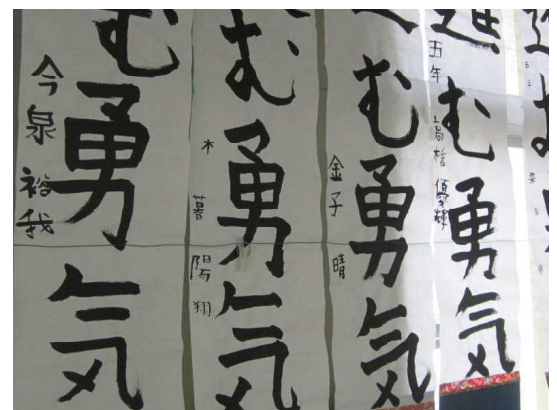 む勇気
今泉裕我
む勇気
木暮陽翔
む勇気
金子晴
進む勇気
五年 高橋優輝